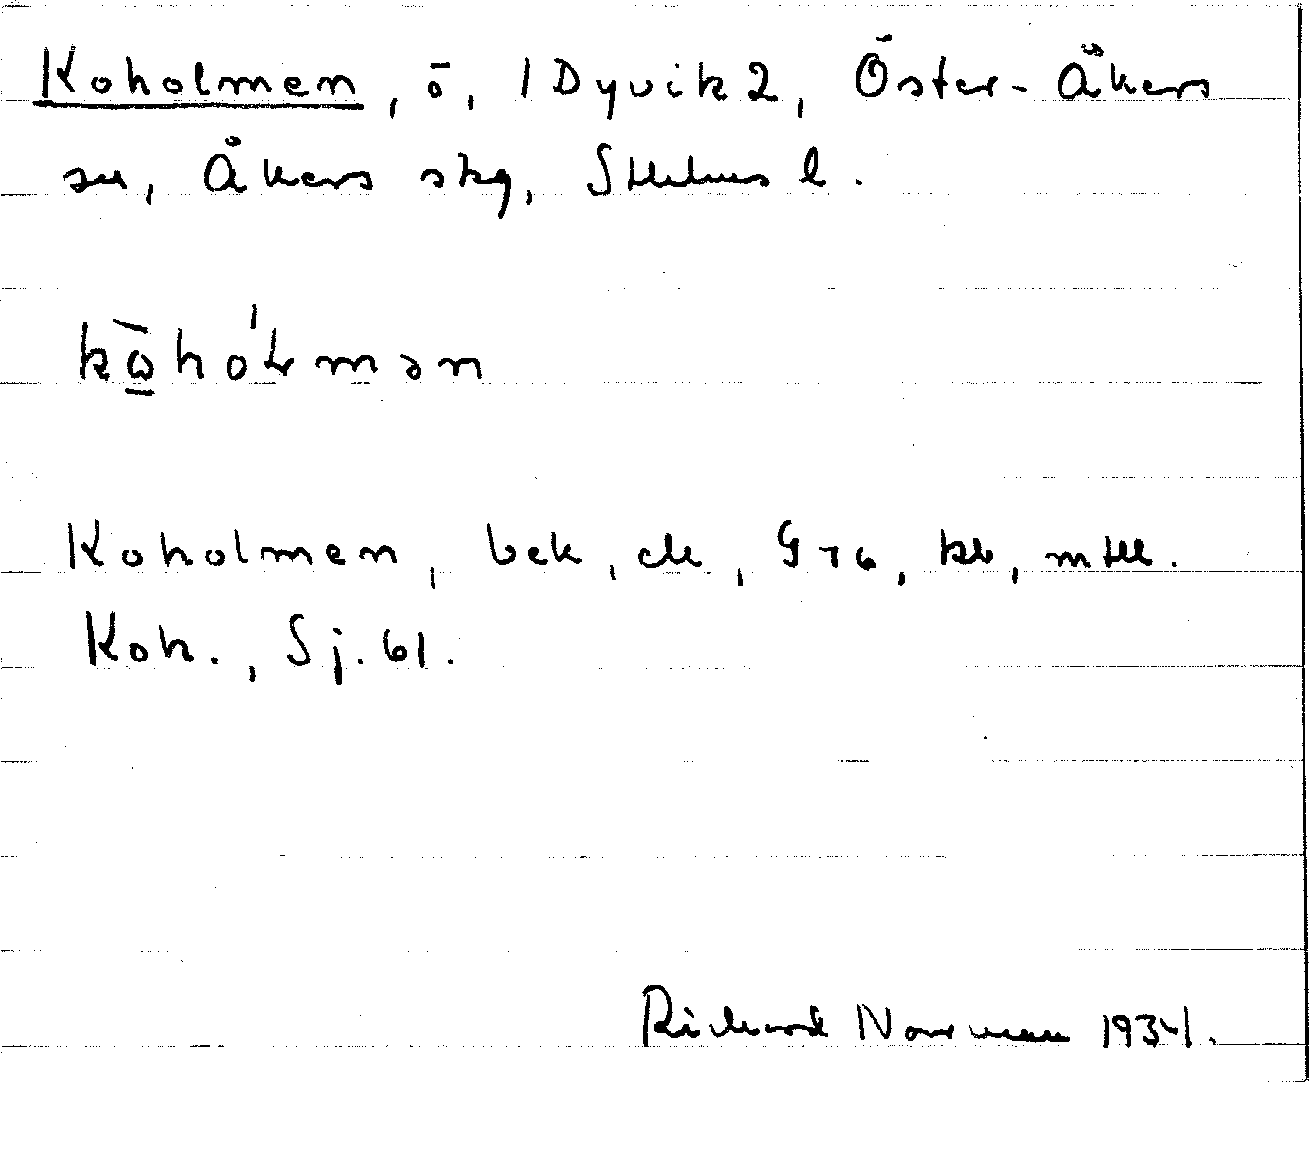 Koholmen, ö, 1 Dyvik 2, Öster-Åkers
sn, Åkers skg, Sthlms l.
Koholmen, bek, ek, G 76, kb, mtll.
Koh., Sj. 61.
Richard Norrman 1934.